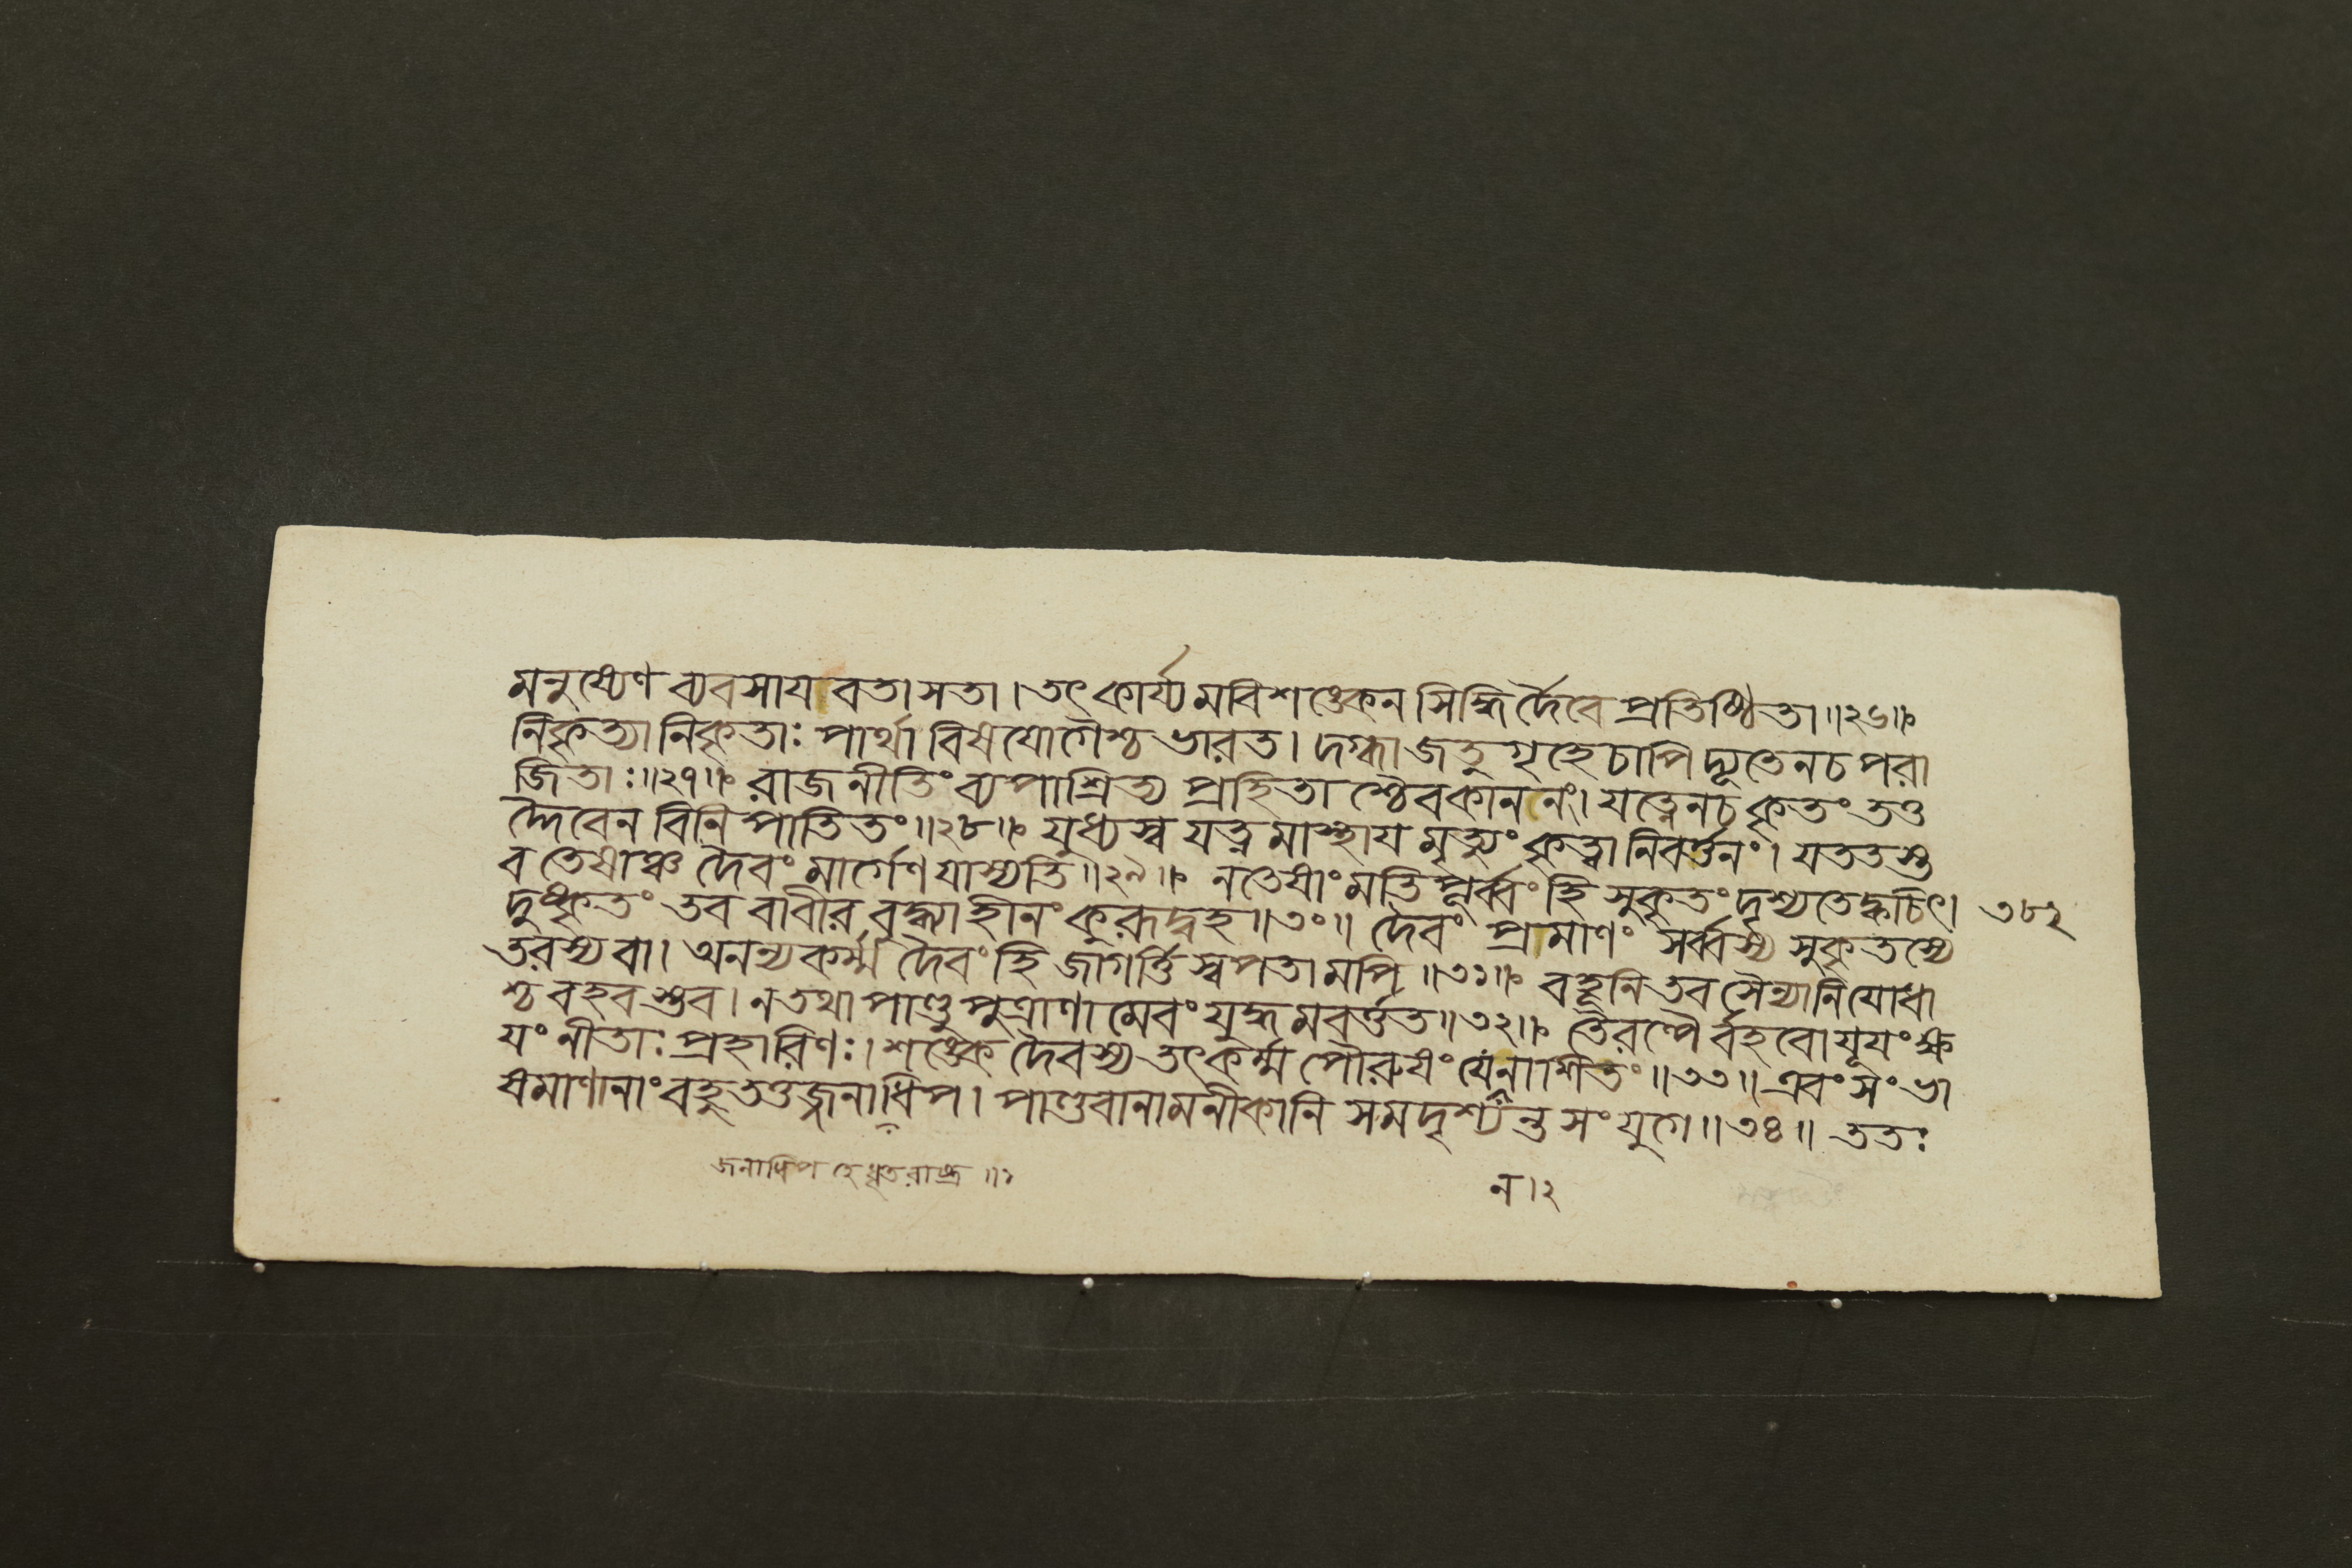 মনুষ্যেণ ব্যবসায়বতা সতা। তৎ কার্য্যমবিশঙ্কেন সিদ্ধির্দৈবে প্রতিষ্ঠিতা॥২৬॥
নিকৃত্যা নিকৃতাঃ পার্থা বিষযোগৈশ্চ ভারত। দগ্ধা জতুগৃহে চাপি দ্যূতেন চ পরা
জিতাঃ॥২৭॥ রাজনীতিং ব্যপাশ্রিত্য প্রহিতাশ্চৈব কাননং। যত্নেন চ কৃতং তত্ত
দ্দৈবেন বিনিপাতিতং॥২৮॥ যুধ্যস্ব যত্নমাস্থায় মৃত্যুং কৃত্বা নিবর্ত্তনং। যততস্ত
ব তেষাঞ্চ দৈবং মার্গেণ যাস্যতি॥২৯॥ ন তেষাং মতিপূর্ব্বং হি সুকৃতং দৃশ্যতে ক্বচিৎ।
দুষ্কৃতং তব বা বীর বুদ্ধ্যা হীনং কুরূদ্বহ॥৩০॥ দৈবং প্রমাণং সর্ব্বস্য সুকৃতস্যে
তরস্য বা। অনন্যকর্ম্ম দৈবং হি জাগর্ত্তি স্বপতামপি॥৩১॥ বহূনি তব সৈন্যানি যোধা
শ্চ বহবস্তব। ন তথা পাণ্ডুপুত্রাণামেবং যুদ্ধমবর্ত্তত॥৩২॥ তৈরল্পৈর্বহবো যূয়ং ক্ষ
য়ং নীতাঃ প্রহারিণঃ। শঙ্কে দৈবস্য তৎ কর্ম্ম পৌরুষং যেন নাশিতং॥৩৩॥ এবং সংভা
ষমাণানাং বহু তত্তজ্জনাধিপ। পাণ্ডবানামনীকানি সমদৃশ্যন্ত সংযুগে॥৩৪॥ ততঃ
৩৮২
জনাধিপ হে ধৃতরাষ্ট্র॥১
ন।২